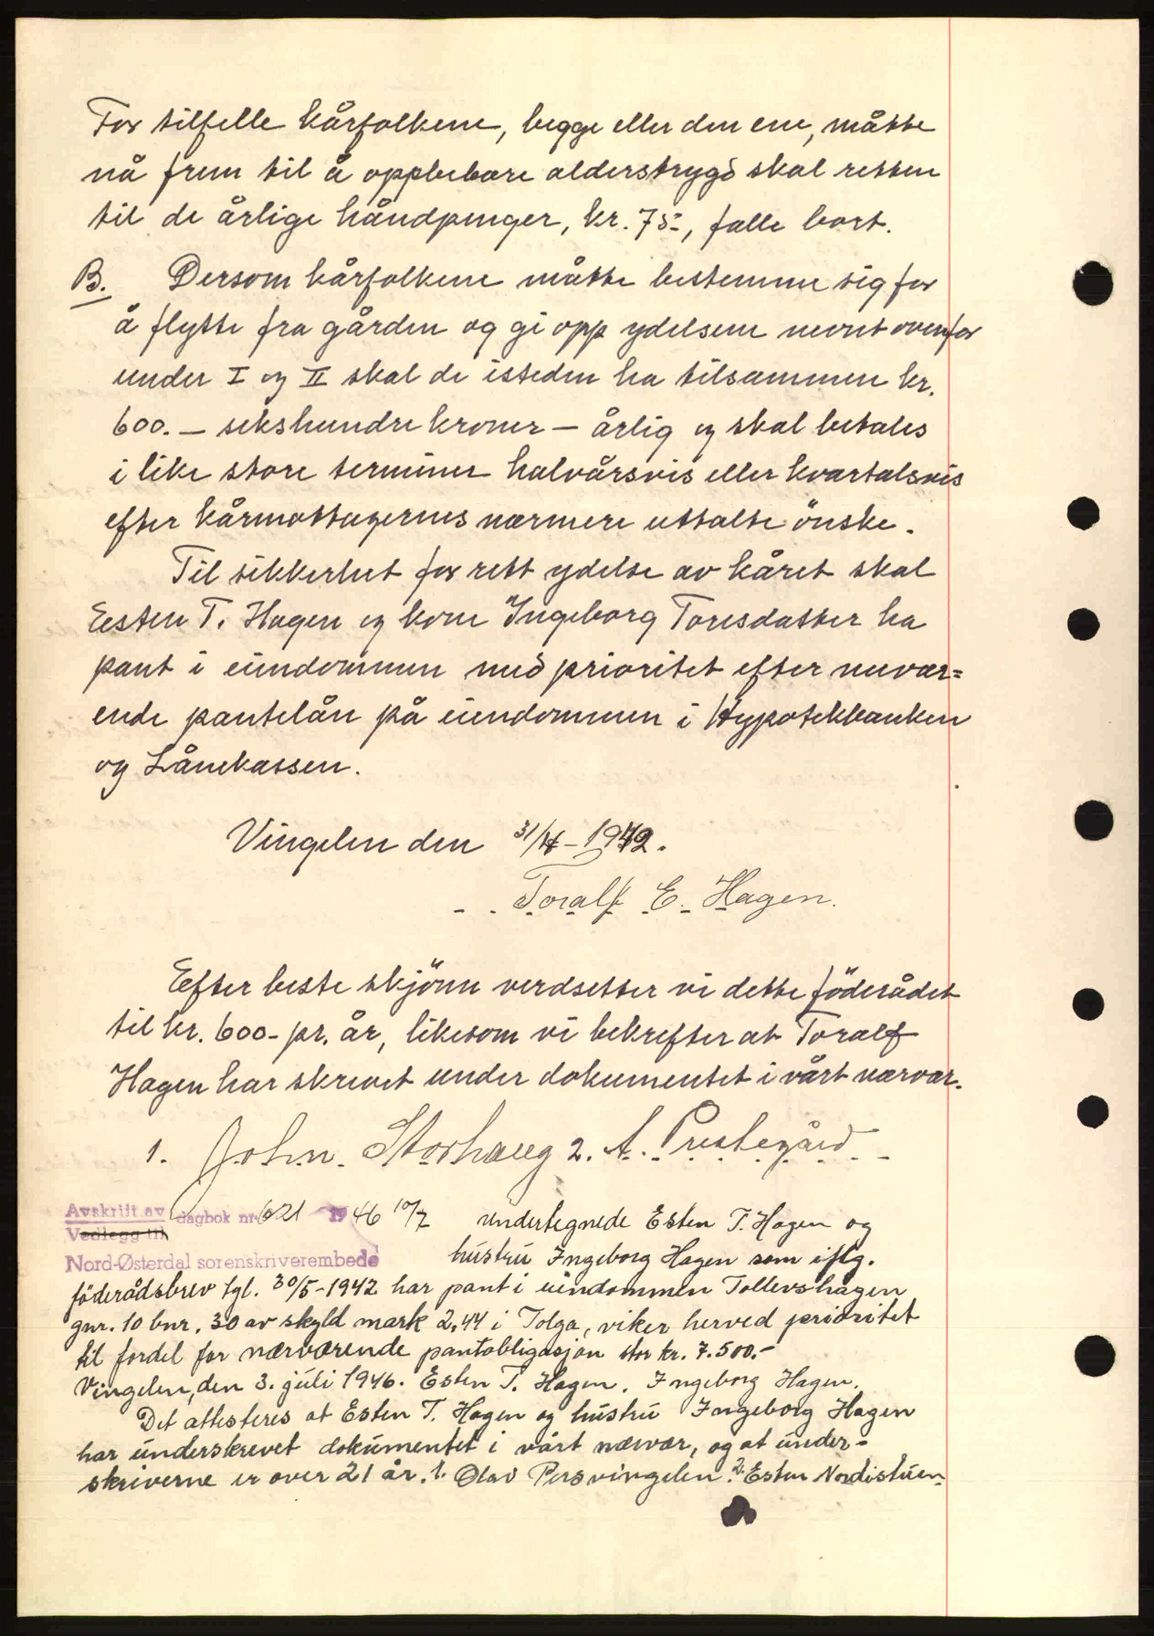 For tilfelle kårfolkene, begge eller den ene, måtte
nå frem til å oppbebære alderstrygd skal retten
til de årlige håndpenger, kr. 75-, falle bort.
B. Dersom kårfolkene måtte bestemme sig for
å flytte fra gården og gi opp ydelsene nevnt ovenfor
under I og II skal de isteden ha tilsammen kr.
600. — sekshundre kroner — årlig og skal betales
i like store terminer halvårsvis eller kvartalsvis
efter kårmottagernes nærmere uttalte önske.
Til sikkerhet for rett ydelse av kåret skal
Esten T. Hagen og kone Ingeborg Toresdatter ha
pant i eiendommen med prioritet efter nuvær=
ende pantelån på eiendommen i Hypotekbanken
og Lånekassen.
Vingelen den 31/ - 1942.
Toralf E. Hagen.
Efter beste skjönn verdsetter vi dette föderådet
til kr. 600- pr. år, likesom vi bekrefter at Toralf
Hagen har skrevet under dokumentet i vårt nærvær.
1. John Storhaug 2. A. Prestegård
Avskrift av dagbok nr. 621 1946 10/7 Undertegnede Esten T. Hagen og
Vedlegg til
Nord-Østerdal sorenskriverembede hustru Ingeborg Hagen som iflg.
föderådsbrev tgl. 30/5-1942 har pant i eiendommen Tollevshagen
gnr. 10 bnr. 30 av skyld mark 2,44 i Tolga, viker herved prioritet
til fordel for nærværende pantobligasjon stor kr. 7.500.-
Vingelen, den 3. juli 1946. Esten T. Hagen. Ingeborg Hagen.
Det attesteres at Esten T. Hagen og hustru Ingeborg Hagen
har underskrevet dokumentet i vårt nærvær, og at under-
skriverne er over 21 år. 1. Olav Persvingelen. 2. Esten Nordistuen